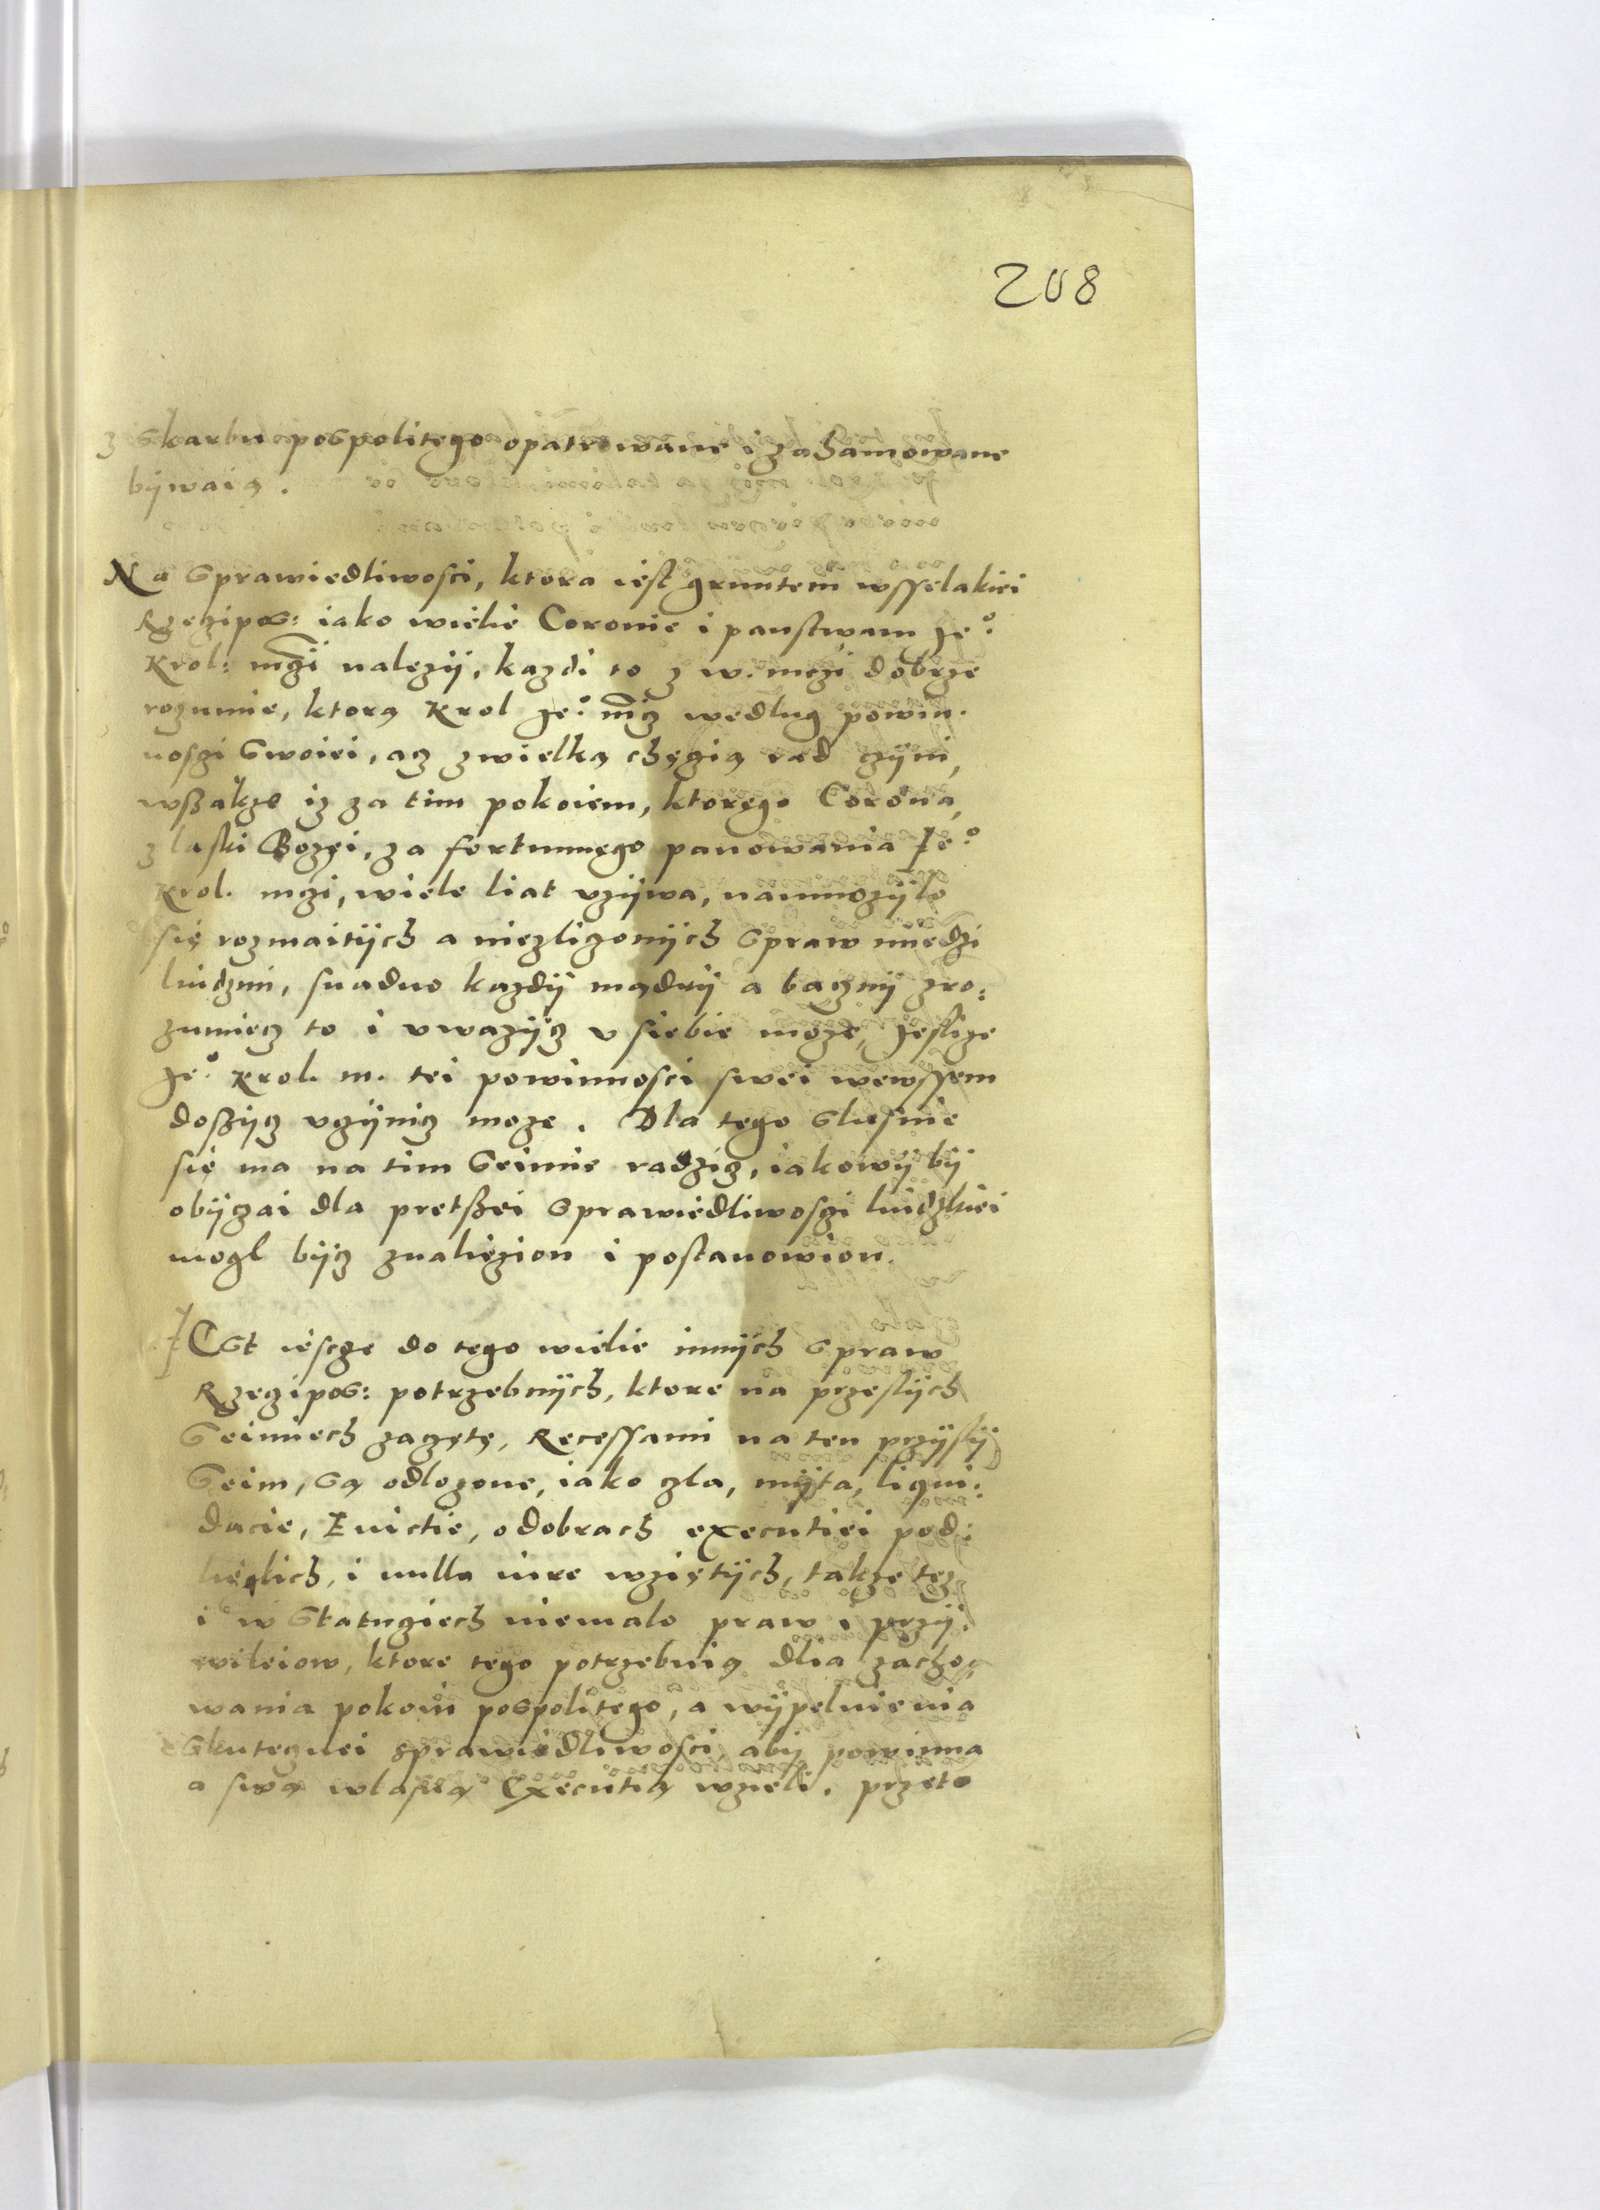 208
z skarbu pospolitego opatrowane i zahamowane
bÿwaią.
Na sprawiedliwosci, ktora iest gruntem wsselakiei
Rzezipos: iako wielie Coronie i panstwam Je°
Krol: mczi nalezÿ, kazdi to z w. mczi dobrze
rozumie, ktorą Krol Je° mcz wedlug powin-
nosczi swoiei, acz zwielką chęczią rad czÿni,
wszakze iz za tim pokoiem, ktorego Corona,
z laski Bozei, za fortunnego panowania Je°
Krol. mczi, wiele liat vzÿwa, namnozÿlo
się rozmaitÿch a niezliczonÿch spraw miedzi
liudzmi, snadno kazdÿ mądrÿ a bacznÿ zro:
zumiecz to i vwazÿcz v siebie moze, Jeslize
Je° Krol. m. tei powinnosci swei wewssem
doszÿcz vczÿnicz moze. Dla tego slusnie
się ma na tim Seimie radzicz, iakowÿ bÿ
obÿczai dla pretszei sprawiedliwosczi liudzkiei
mogl bÿcz znaliezion i postanowion.
JEst iescze do tego wielie innÿch spraw
Rzeczipos: potrzebnÿch, ktore na przeslÿch
Seimiech zaczęte, Recessami na ten przÿslÿ
Seim, są odlozone, iako czla, mÿta, liqui:
dacie, Euictie, o dobrach executiei pod:
lieglich, i nullo iure wziętÿch, takze tez
i w Statuciech niemalo praw i przÿ:
wileiow, ktore tego potrzebuią dlia zacho:
wania pokoiu pospolitego, a wÿpelnienia
skutecznei sprawiedliwosci, abÿ powinną
a swą wlasną Executią wzieli. przeto